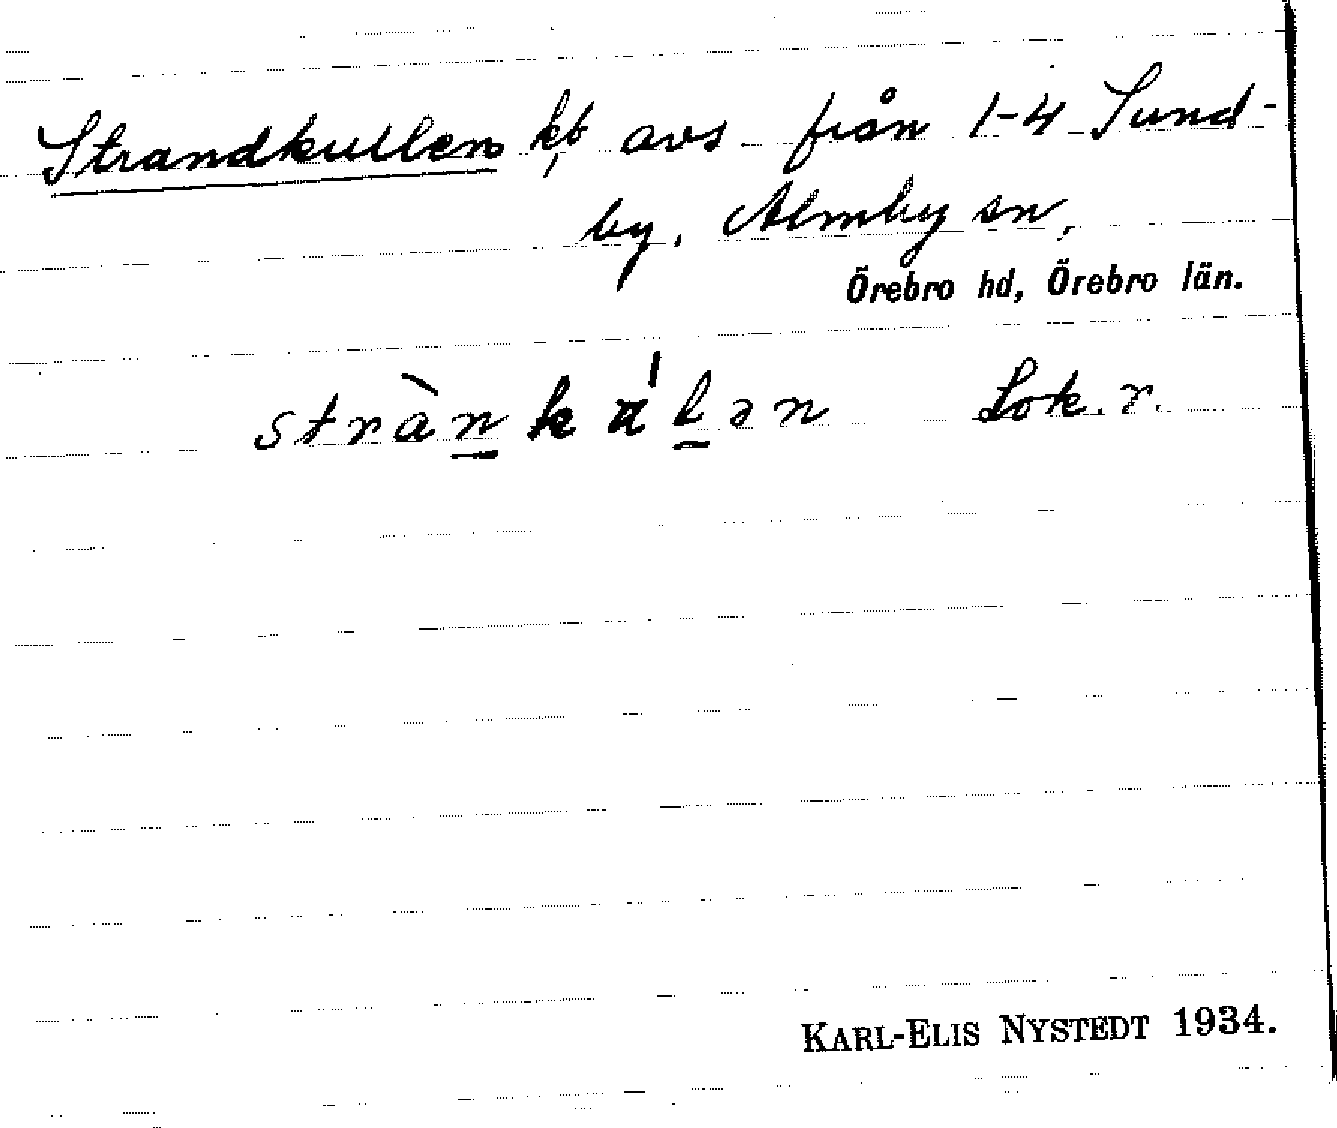 Strandkullen lt avs från 1-4 Sund-
by, Almby sn,
Örebro hd, Örebro län.
stràn̲kál̲ən Lok. r.
KARL-ELIS NYSTEDT 1934.